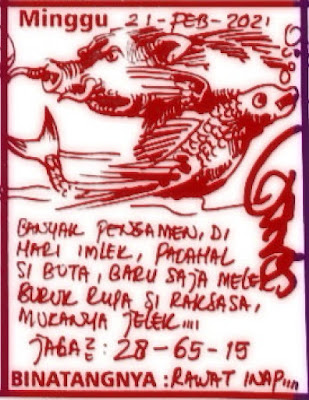 Minggu 21-PEB-2021
BANYAK PENGAMEN, DI
HARI IMLEK, PADAHAL
SI BUTA, BARU SAJA MELEK
BURUK RUPA SI RAKSASA,
MUKANYA JELEK,,,,
JAGA²: 28-65-15
BINATANGNYA : RAWAT INAP,,,,